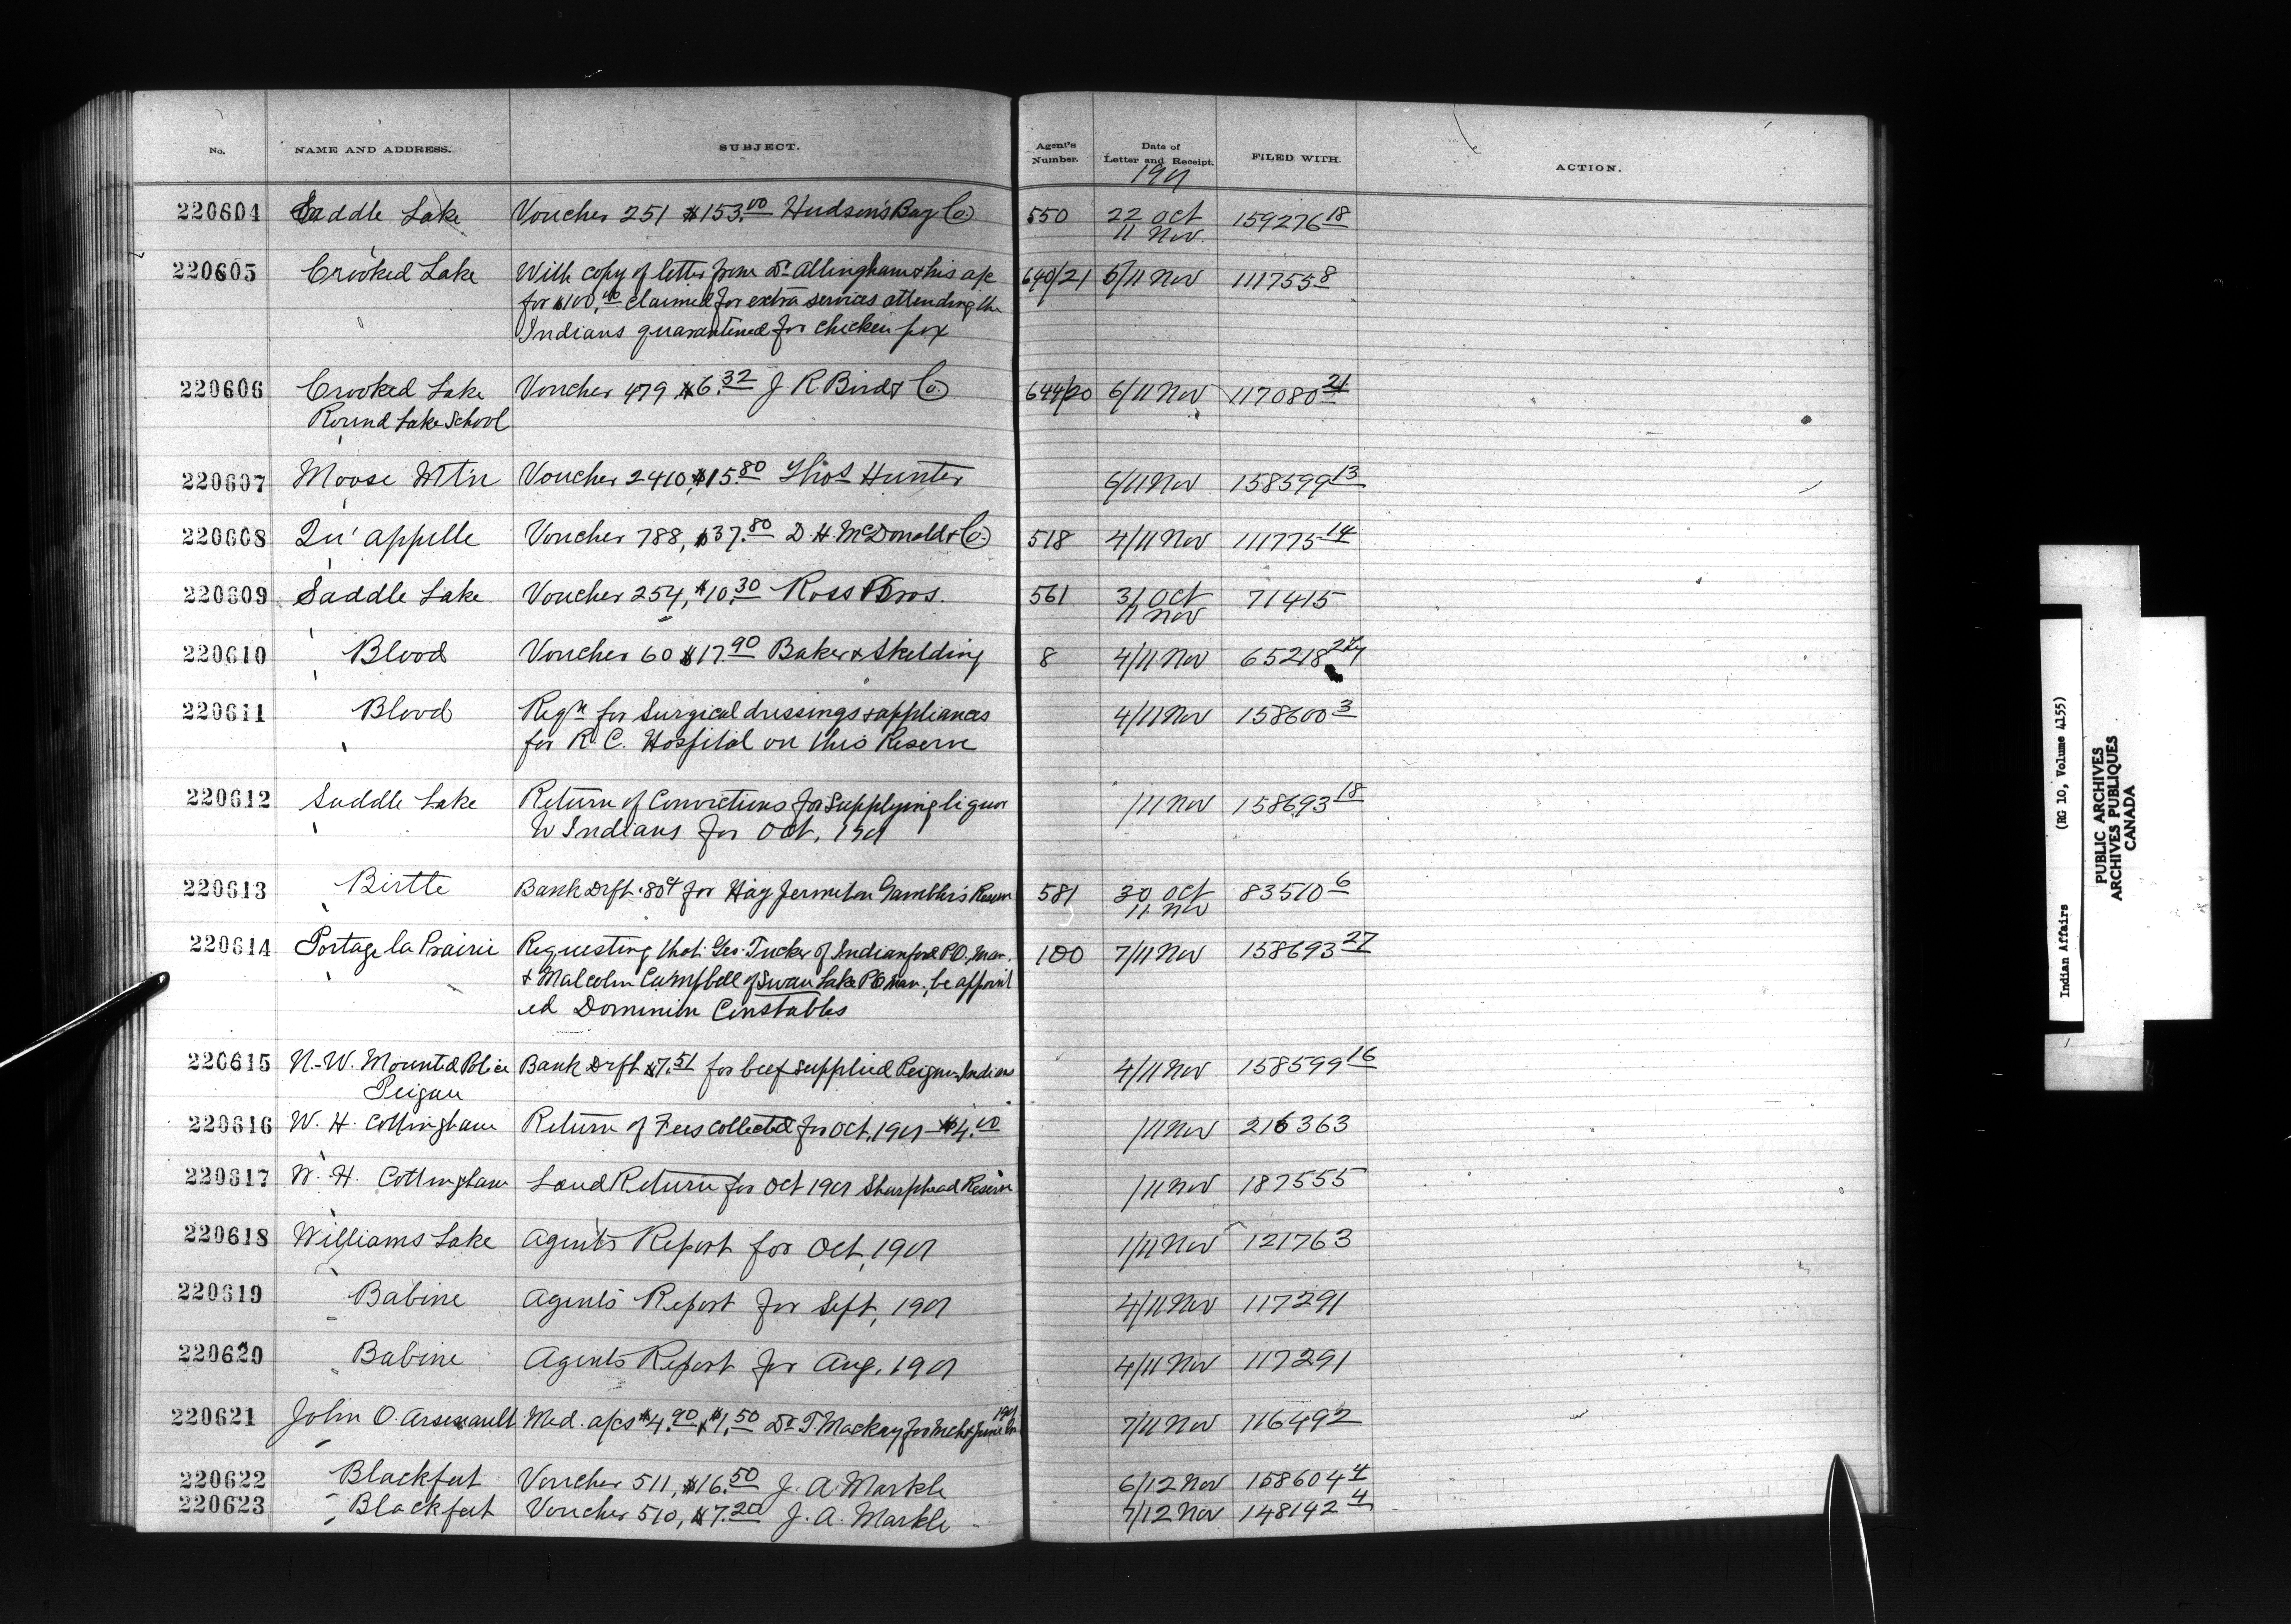 No. NAME AND ADDRESS. SUBJECT. Agent's Number. Date of Letter and Receipt. FILED WITH. ACTION.
1901
220604 Saddle Lake Voucher 251 $153.00 Hudson's Bay Co 550 22 Oct 11 Nov. 159276 18
220605 Crooked Lake With copy of letter from Dr Allingham & his a/c 640/21 5/11 Nov 111755 8
for $100.00 claimed for extra services attending the
Indians quarantined for chicken pox
220606 Crooked Lake Voucher 479 $6.32 J. R. Bird & Co. 644/20 6/11 Nov 117080 21
Round Lake School
220607 Moose Mt'n Voucher 2410, $15.80 Thos Hunter 6/11 Nov 158599 13
220608 Qu'appelle Voucher 788, $37.80 D. H. McDonald & Co. 518 4/11 Nov 111775 14
220609 Saddle Lake Voucher 254, $10.30 Ross Bros. 561 31 Oct 11 Nov 71415
220610 Blood Voucher 60 $17.90 Baker & Skelding 8 4/11 Nov 65218
220611 Blood Reqn for Surgical dressings & appliances 4/11 Nov 158600 3
for R. C. Hospital on this Reserve
220612 Saddle Lake Return of Convictions for supplying liquor /11 Nov 158693 18
to Indians for Oct, 1901
220613 Birtle Bank Drft .80¢ for Hay Permit on Gambler's Reserve 581 30 Oct 11 Nov 83510 6
220614 Portage la Prairie Requesting that Geo. Tucker of Indianford P.O. Man. 100 7/11 Nov 158693 27
& Malcolm Campbell of Swan Lake P.O. Man., be appoint
ed Dominion Constables
220615 N.-W. Mounted Police Bank Drft $7.51 for beef supplied Peigan Indians 4/11 Nov 158599 16
Peigan
220616 W. H. Cottingham Return of Fees collected for Oct, 1901 - $4.00 /11 Nov 216363
220617 W. H. Cottingham Land Return for Oct 1901 Sharphead Reserve /11 Nov 187555
220618 Williams Lake Agent's Report for Oct, 1901 1/11 Nov 121763
220619 Babine Agents Report for Sept, 1901 4/11 Nov 117291
220620 Babine Agents Report for Aug, 1901 4/11 Nov 117291
220621 John O. Arsenault Med. a/cs $4.90 & $1.50 Dr T. Mackay for Mch & June 1901 7/11 Nov 116492
220622 Blackfeet Voucher 511, $16.50 J. A. Markle 6/12 Nov 158604 4
220623 Blackfeet Voucher 510, $7.20 J. A. Markle 7/12 Nov 148142 4
Indian Affairs (RG 10, Volume 4155)
PUBLIC ARCHIVES
ARCHIVES PUBLIQUES
CANADA